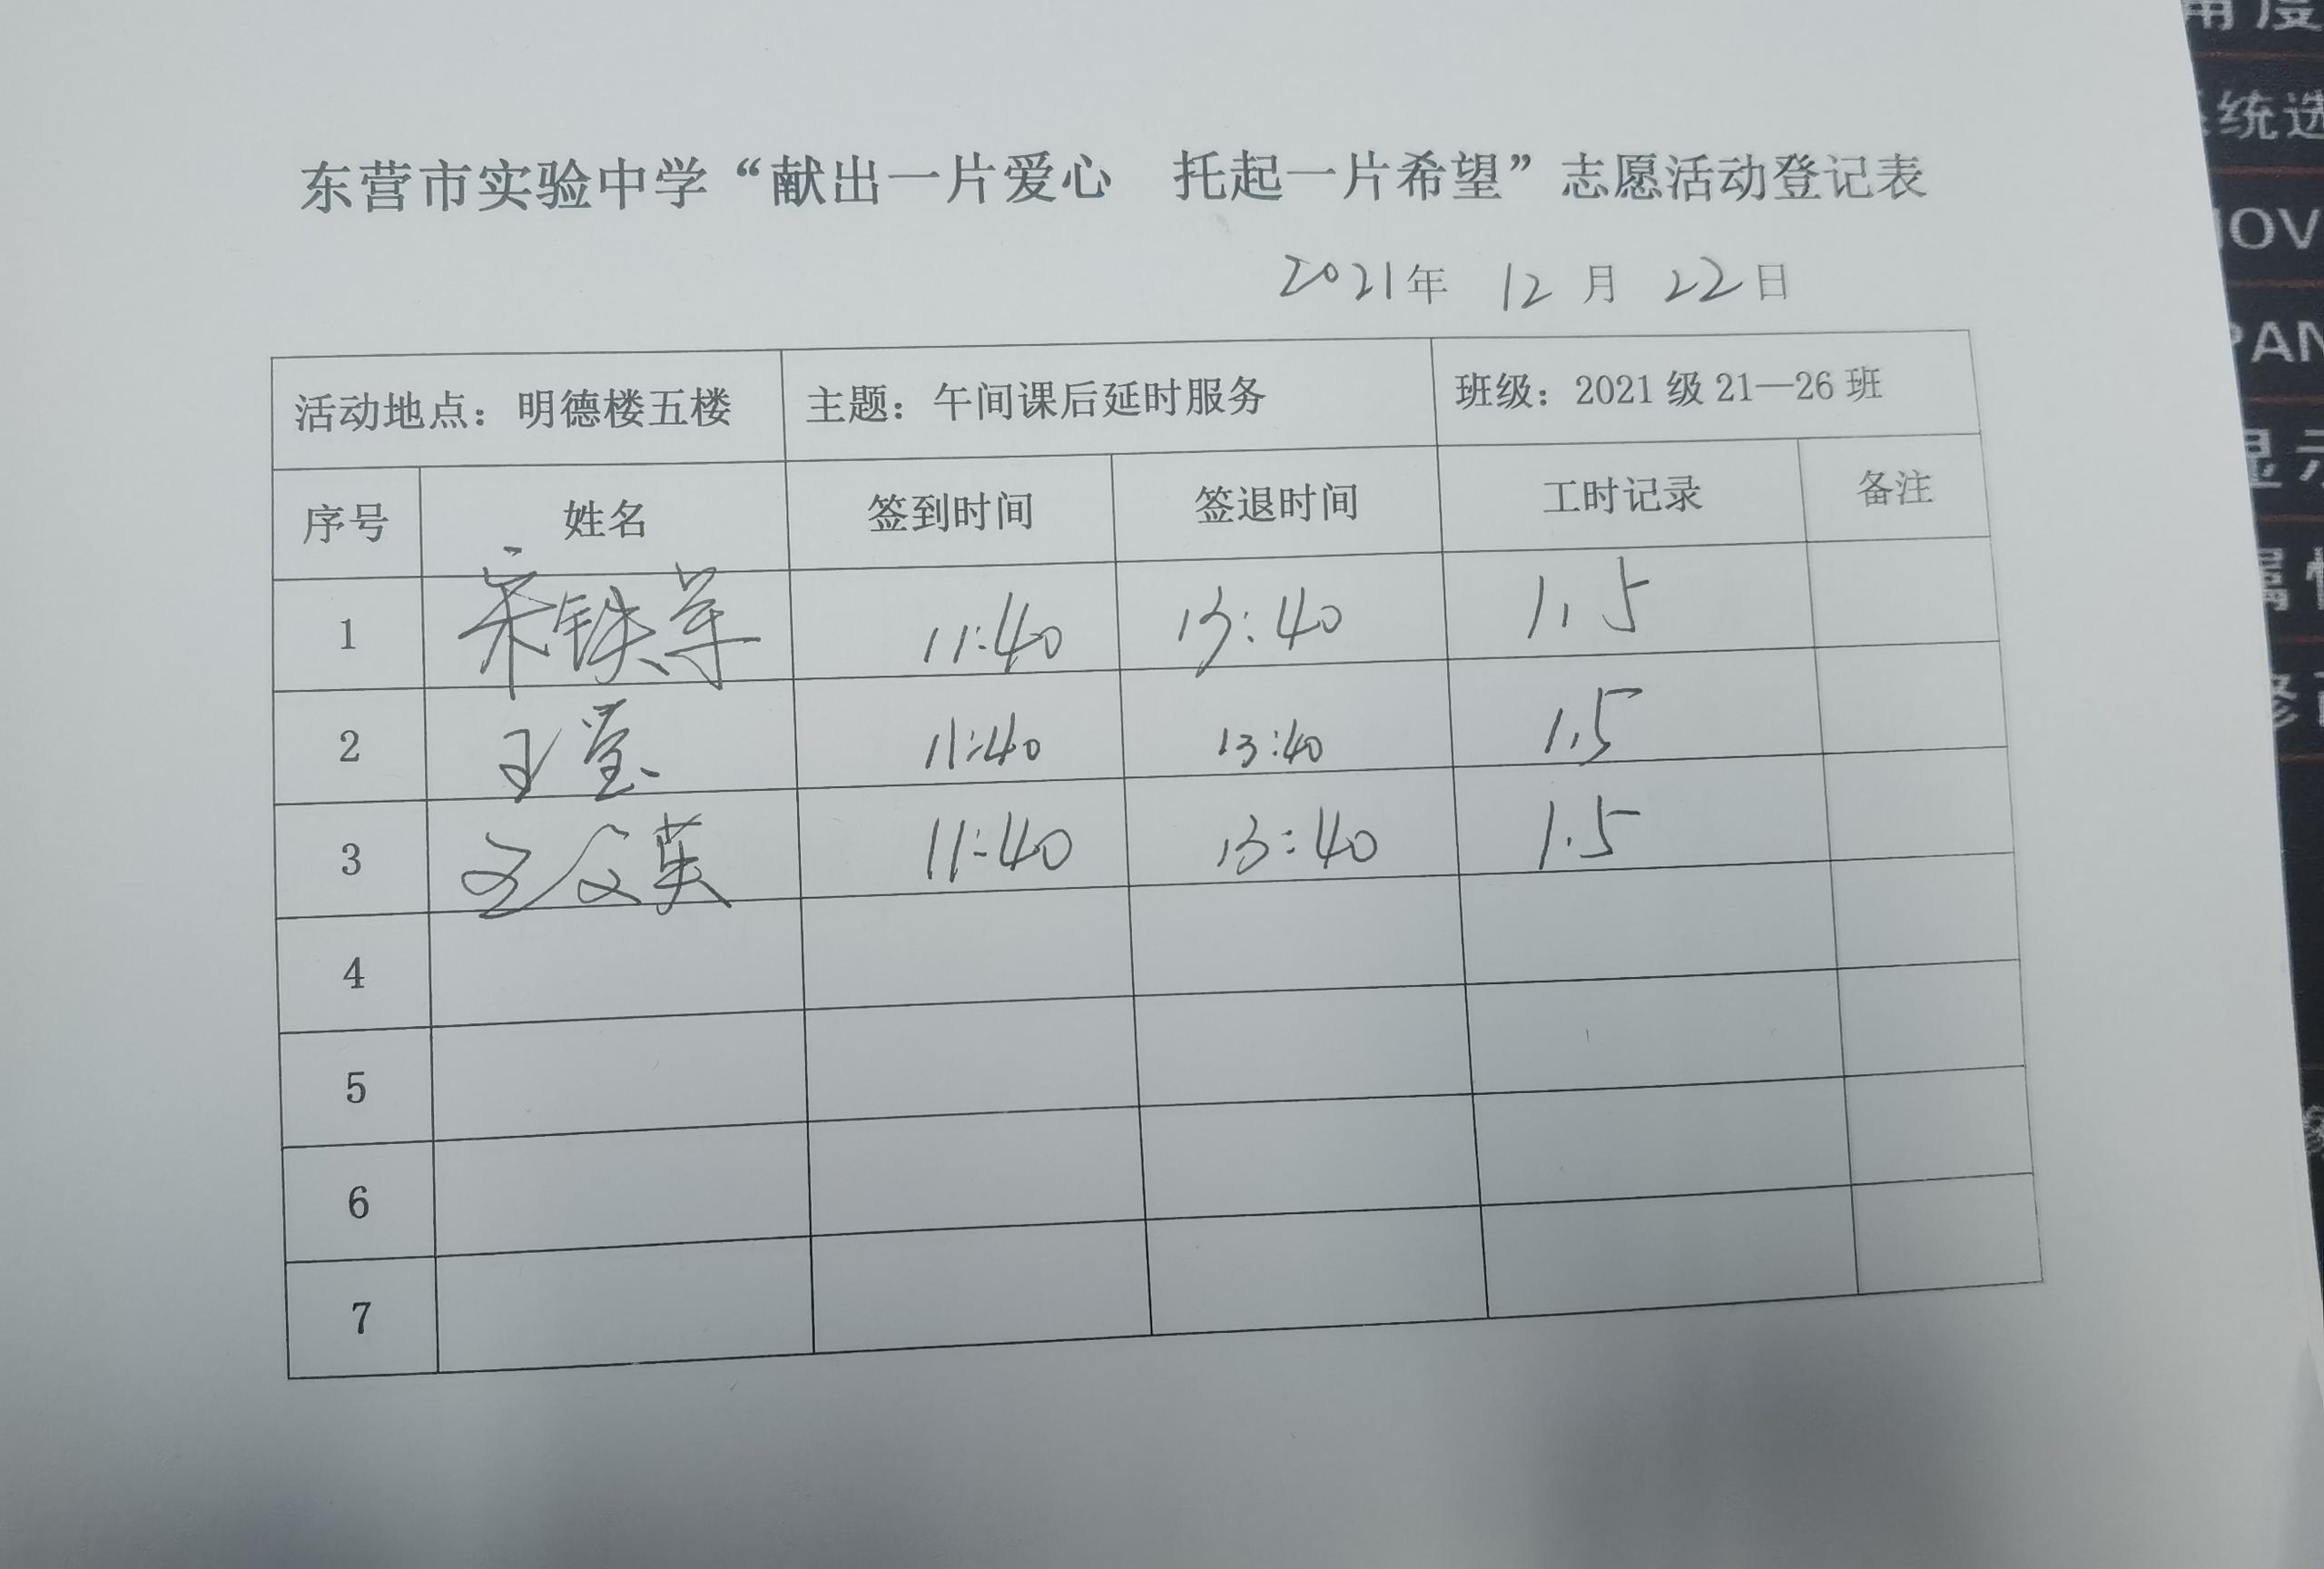 东营市实验中学“献出一片爱心 托起一片希望”志愿活动登记表
2021年 12月 22日
活动地点：明德楼五楼 主题：午间课后延时服务 班级：2021级21—26班
序号 姓名 签到时间 签退时间 工时记录 备注
1 宋铁军 11:40 13:40 1.5
2 王莹 11:40 13:40 1.5
3 王文英 11:40 13:40 1.5
4
5
6
7
角度
系统选
NOV
PAN
显示
属性
修改